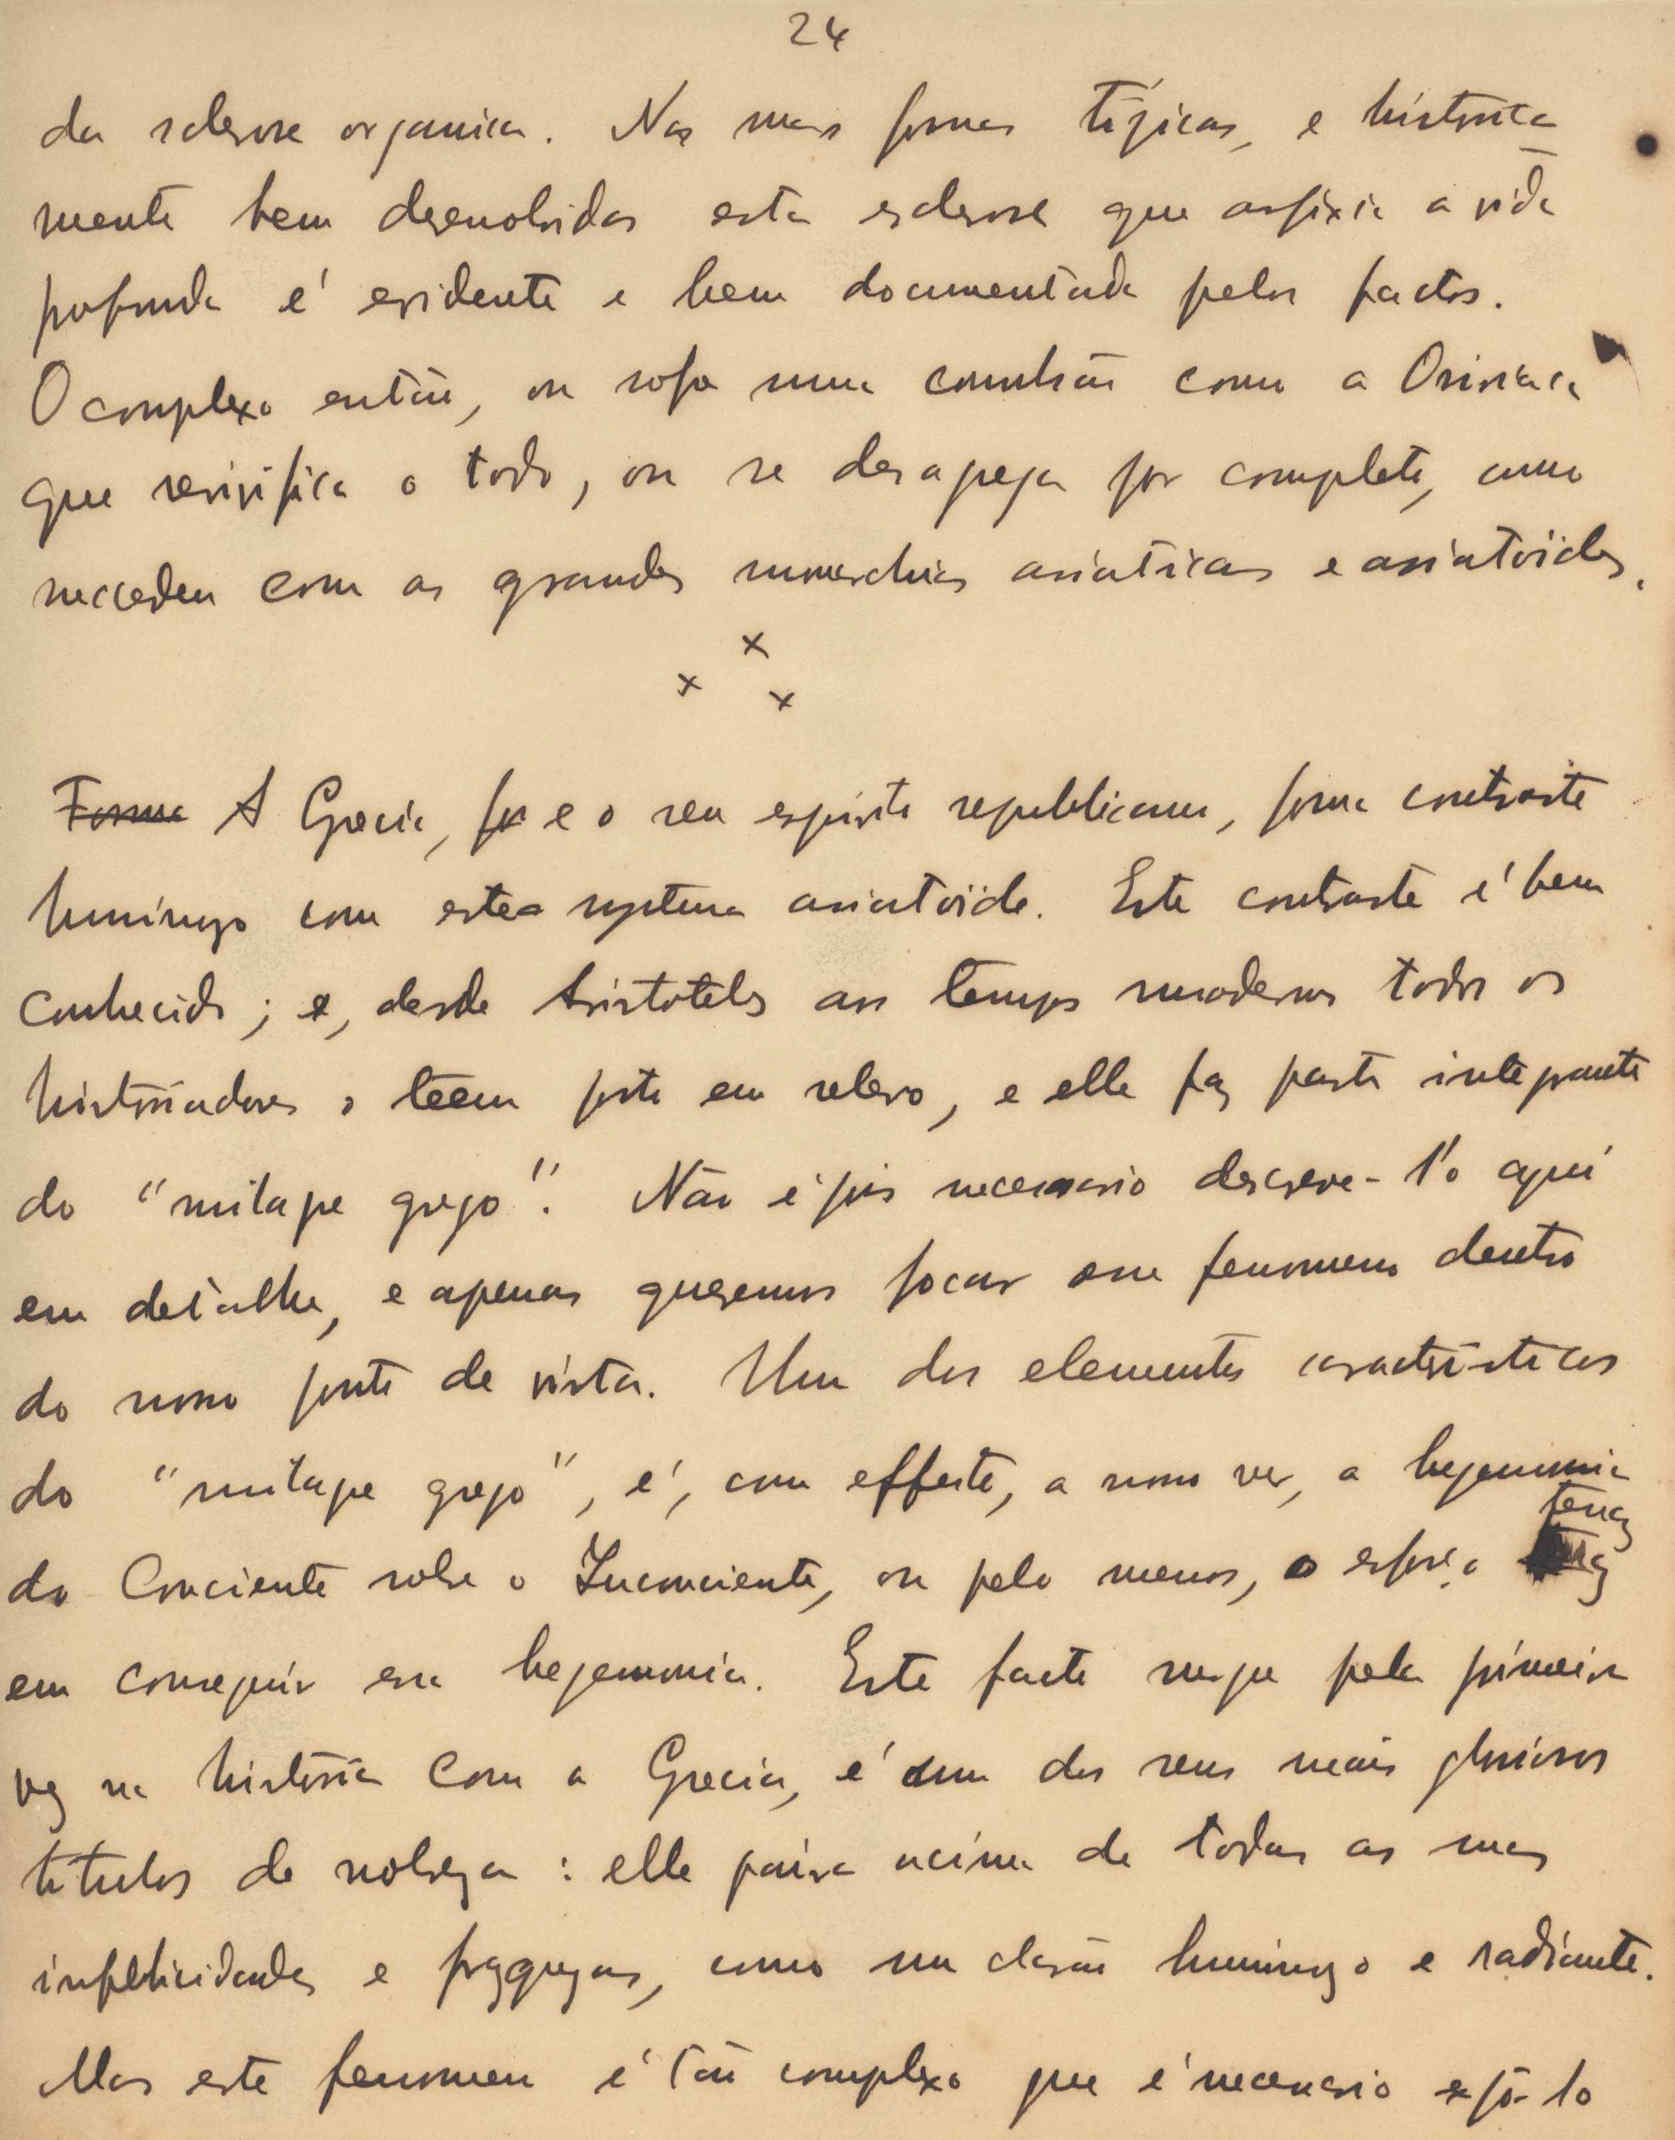 24
da sclerose organica. Nas suas formas tipicas, e historica
mente bem desenvolvidas esta esclerose que asfixia a vida
profunda é evidente e bem documentada pelos factos.
O complexo então, ou sofre uma convulsão como a Osiriaca
que revivifica o todo, ou se desagrega por completo, como
succedeu com as grandes monarchias asiaticas e asiatoides.
x
x x
Forma A Grecia, e o seu espirito republicano, forma contraste
luminoso com este systema asiatoide. Este contraste é bem
conhecido; e, desde Aristoteles aos tempos modernos todos os
historiadores o teem posto em relevo, e elle faz parte integrante
do "milagre grego". Não é pois necessario descreve-l'o aqui
em detalhe, e apenas queremos focar esse fenomeno dentro
do nosso ponto de vista. Um dos elementos caracteristicos
do "milagre grego", é, com effeito, a nosso ver, a hegemonia
do Conciente sobre o Inconciente, ou pelo menos, o esforço tenaz
em conseguir essa hegemonia. Este facto surge pela primeira
vez na historia com a Grecia, é um dos seus mais gloriosos
titulos de nobreza: elle paira acima de todas as suas
infelicidades e fraquezas, como um clarão luminoso e radiante.
Mas este fenomeno é tão complexo que é necessario expô-lo